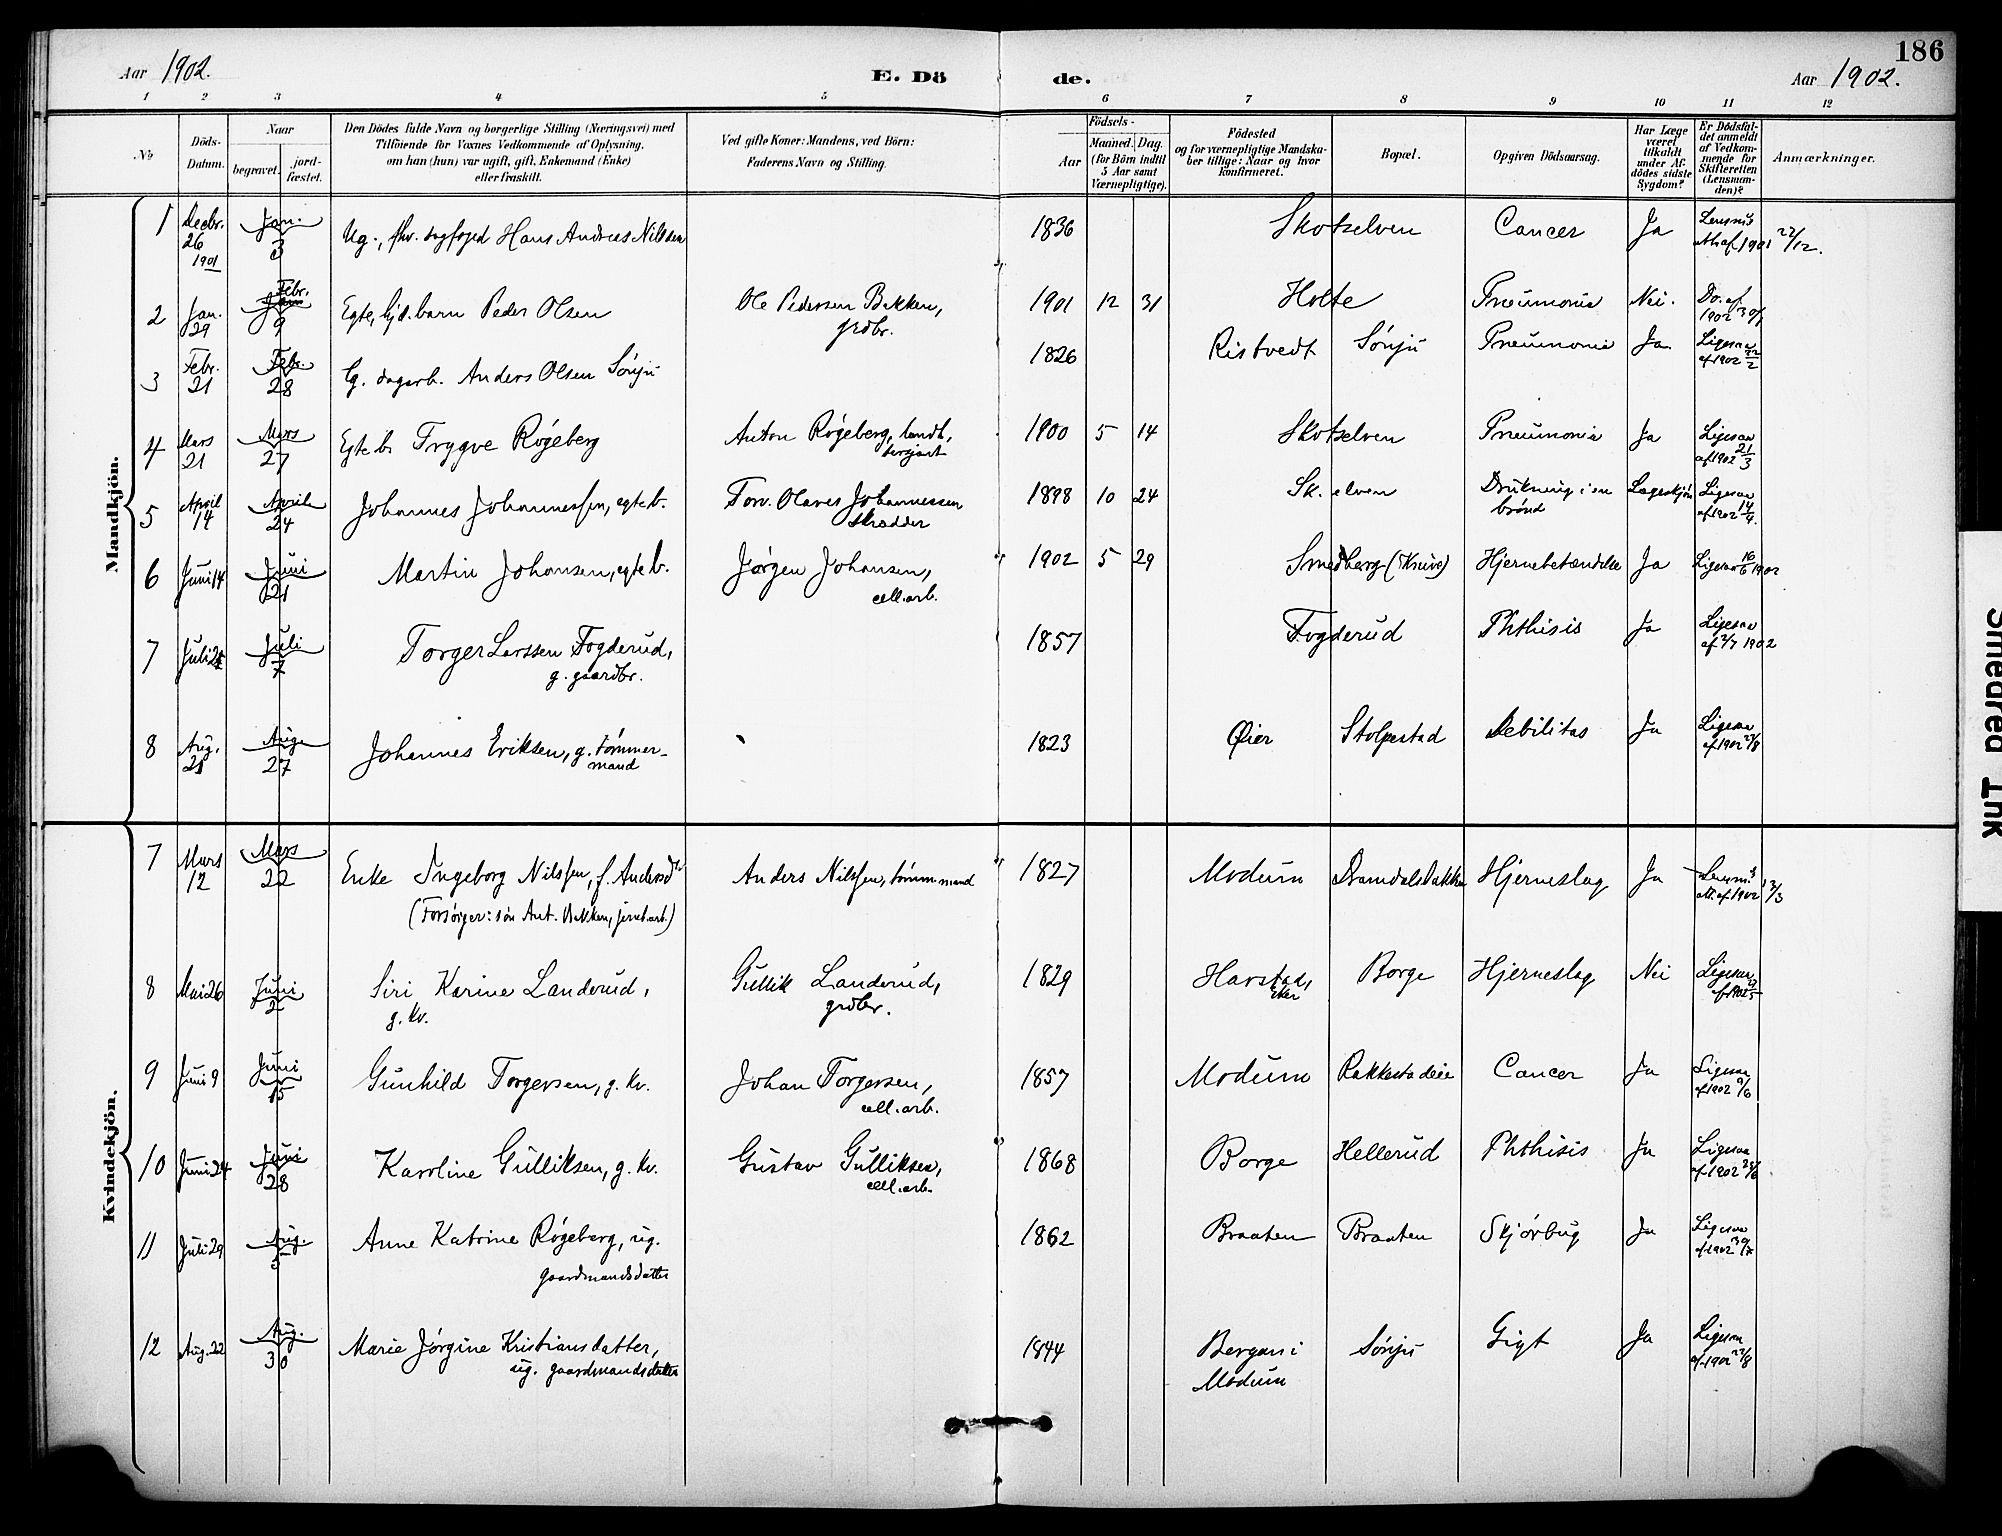 186
Aar 1902. E. Dö de. Aar 1902.
1 2 3 4 5 6 7 8 9 10 11 12
No
Döds-Datum.
Naar
begravet.
jord-fæstet.
Den Dödes fulde Navn og borgerlige Stilling (Næringsvei) med
Tilföiende for Voxnes Vedkommende af Oplysning,
om han (hun) var ugift, gift, Enkemand (Enke)
eller fraskilt.
Ved gifte Koner: Mandens, ved Börn:
Faderens Navn og Stilling.
Födsels-
Aar
Maaned. Dag.
(for Börn indtil
5 Aar samt
Værnepligtige).
Födested
og for værnepligtige Mandska-
ber tillige: Naar og hvor
konfirmeret.
Bopæl.
Opgiven Dödsaarsag.
Har Læge
været
tilkaldt
under Af-
dödes sidste
Sygdom?
Er Dödsfal-
det anmeldt
af Vedkom-
mende for
Skifteretten
(Lensman-
den)?
Anmærkninger.
Mandkjön.
1 Decbr. 26 1901 Jan. 3 Ug., fhv. dagfoged Hans Andreas Nilsen 1836 Skotselven Cancer Ja Lensms Att. af 1901 27/12.
2 Jan. 29 Febr. 9 Egte, hjd. barn Peder Olsen Ole Pedersen Bakken, grdbr. 1901 12 31 Holte Pneumonia Nei. Do. af 1902 30/1
3 Febr. 21 Febr. 28 G. dagarb. Anders Olsen Sønju 1826 Ristvedt Sønju Pneumonia Ja Ligesaa af 1902 22/2
4 Mars 21 Mars 27 Egte b. Trygve Røgeberg Anton Røgeberg, landh. 1900 5 14 Skotselven Pneumonia Ja Ligesaa af 1902 21/3
5 April 14 April 24 Johannes Johannessen, egte b. Torv. Olaves Johannessen Skrædder 1898 10 24 Sk. elven Drukning i en brønd Lægeskjøn Ligesaa af 1902 14/4.
6 Juni 14 Juni 21 Martin Johansen, egte b. Jørgen Johansen, cell.arb. 1902 5 29 Smedberg (Knive) Hjernebetændelse Ja Ligesaa 16/6 1902
7 Juli 2 Juli 7 Torger Larssen Fogderud, g. gaardbr. 1857 Fogderud Phthisis Ja Ligesaa af 2/7 1902
8 Aug. 21 Aug. 27 Johannes Eriksen, g. tømmer-mand 1823 Øier Stolpestad Debilitas Ja Ligesaa af 1902 23/8
Kvindekjön.
7 Mars 12 Mars 22 Enke Ingeborg Nilssen, f. Andersdtr Anders Nilssen, tømmmand 1827 Modum Damdalsbakken Hjerneslag Ja Lensms att. af 1902 13/3
(Forsørger: søn Ant. Bakken, jernb.arb.)
8 Mai 26 Juni 2 Siri Karine Landerud, g. kv. Gullik Landerud, grdbr. 1829 Harstad, Eker Borge Hjerneslag Nei Ligesaa af 1902 27/5
9 Juni 9 Juni 15 Gunhild Torgersen, g. kv. Johan Torgersen, cell.arb. 1857 Modum Rakkestadeie Cancer Ja Ligesaa af 1902 9/6
10 Juni 24 Juni 28 Karoline Gulliksen, g. kv. Gustav Gulliksen, cell.arb. 1868 Borge Hellerud Phthisis Ja Ligesaa af 1902 25/6
11 Juli 29 Aug. 5 Anne Katrine Røgeberg, ug. gaardmandsdatter 1862 Braaten Braaten Skjørbug Ja Ligesaa af 1902 30/7
12 Aug. 22 Aug. 30 Marie Jørgine Kristiansdatter, ug. gaardmandsdatter 1844 Bergan i Modum Sønju Gigt Ja Ligesaa af 1902 22/8
Smeared Ink